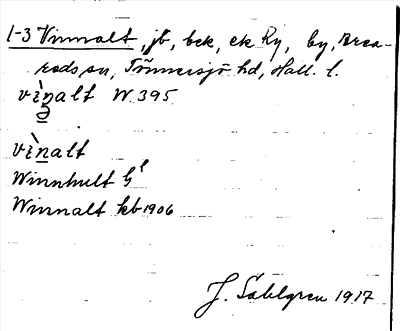 1-3 Vinnalt, jb, bek, ek Ry, by, Brea-
reds sn, Tönnersjö hd, Hall. l.
vìnalt W. 395
vìnalt
Winnhult
Winnalt kb 1906
J. Sahlgren 1917